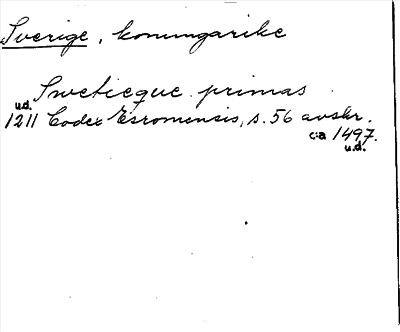 Sverige, konungarike
Swetieque primas
u.d.
1211 Codex Esromensis, s. 56 avskr.
c:a 1497.
u.d.